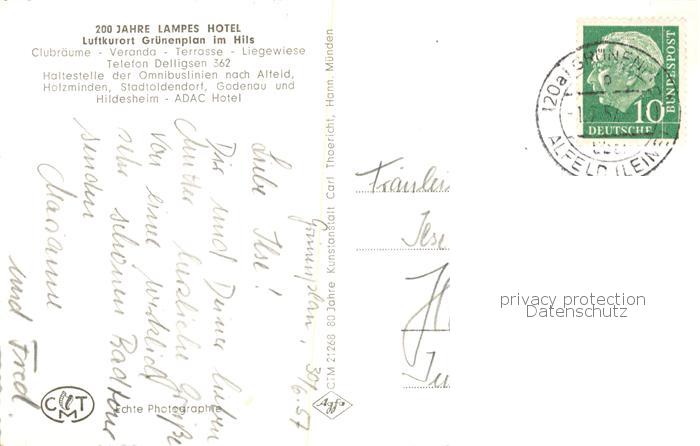 200 JAHRE LAMPES HOTEL
Luftkurort Grünenplan im Hils
Clubräume - Veranda - Terrasse - Liegewiese
Telefon Delligsen 362
Haltestelle der Omnibuslinien nach Alfeld,
Holzminden, Stadtoldendorf, Godenau und
Hildesheim - ADAC Hotel
Grünenplan, 30/6.57
Liebe Ilse!
Dir und Deiner lieben
Mutter herzliche Grüße
von einer wirklich
sehr schönen Radtour
senden
Marianne
und Fred.
C M T
Echte Photographie
Agfa
CTM 21268 80 Jahre Kunstanstalt Carl Thoericht, Hann. Münden
Fräulein
Ilse
(20a) GRÜNENPLAN
ÜBER
ALFELD (LEINE)
10
DEUTSCHE
BUNDESPOST
privacy protection
Datenschutz